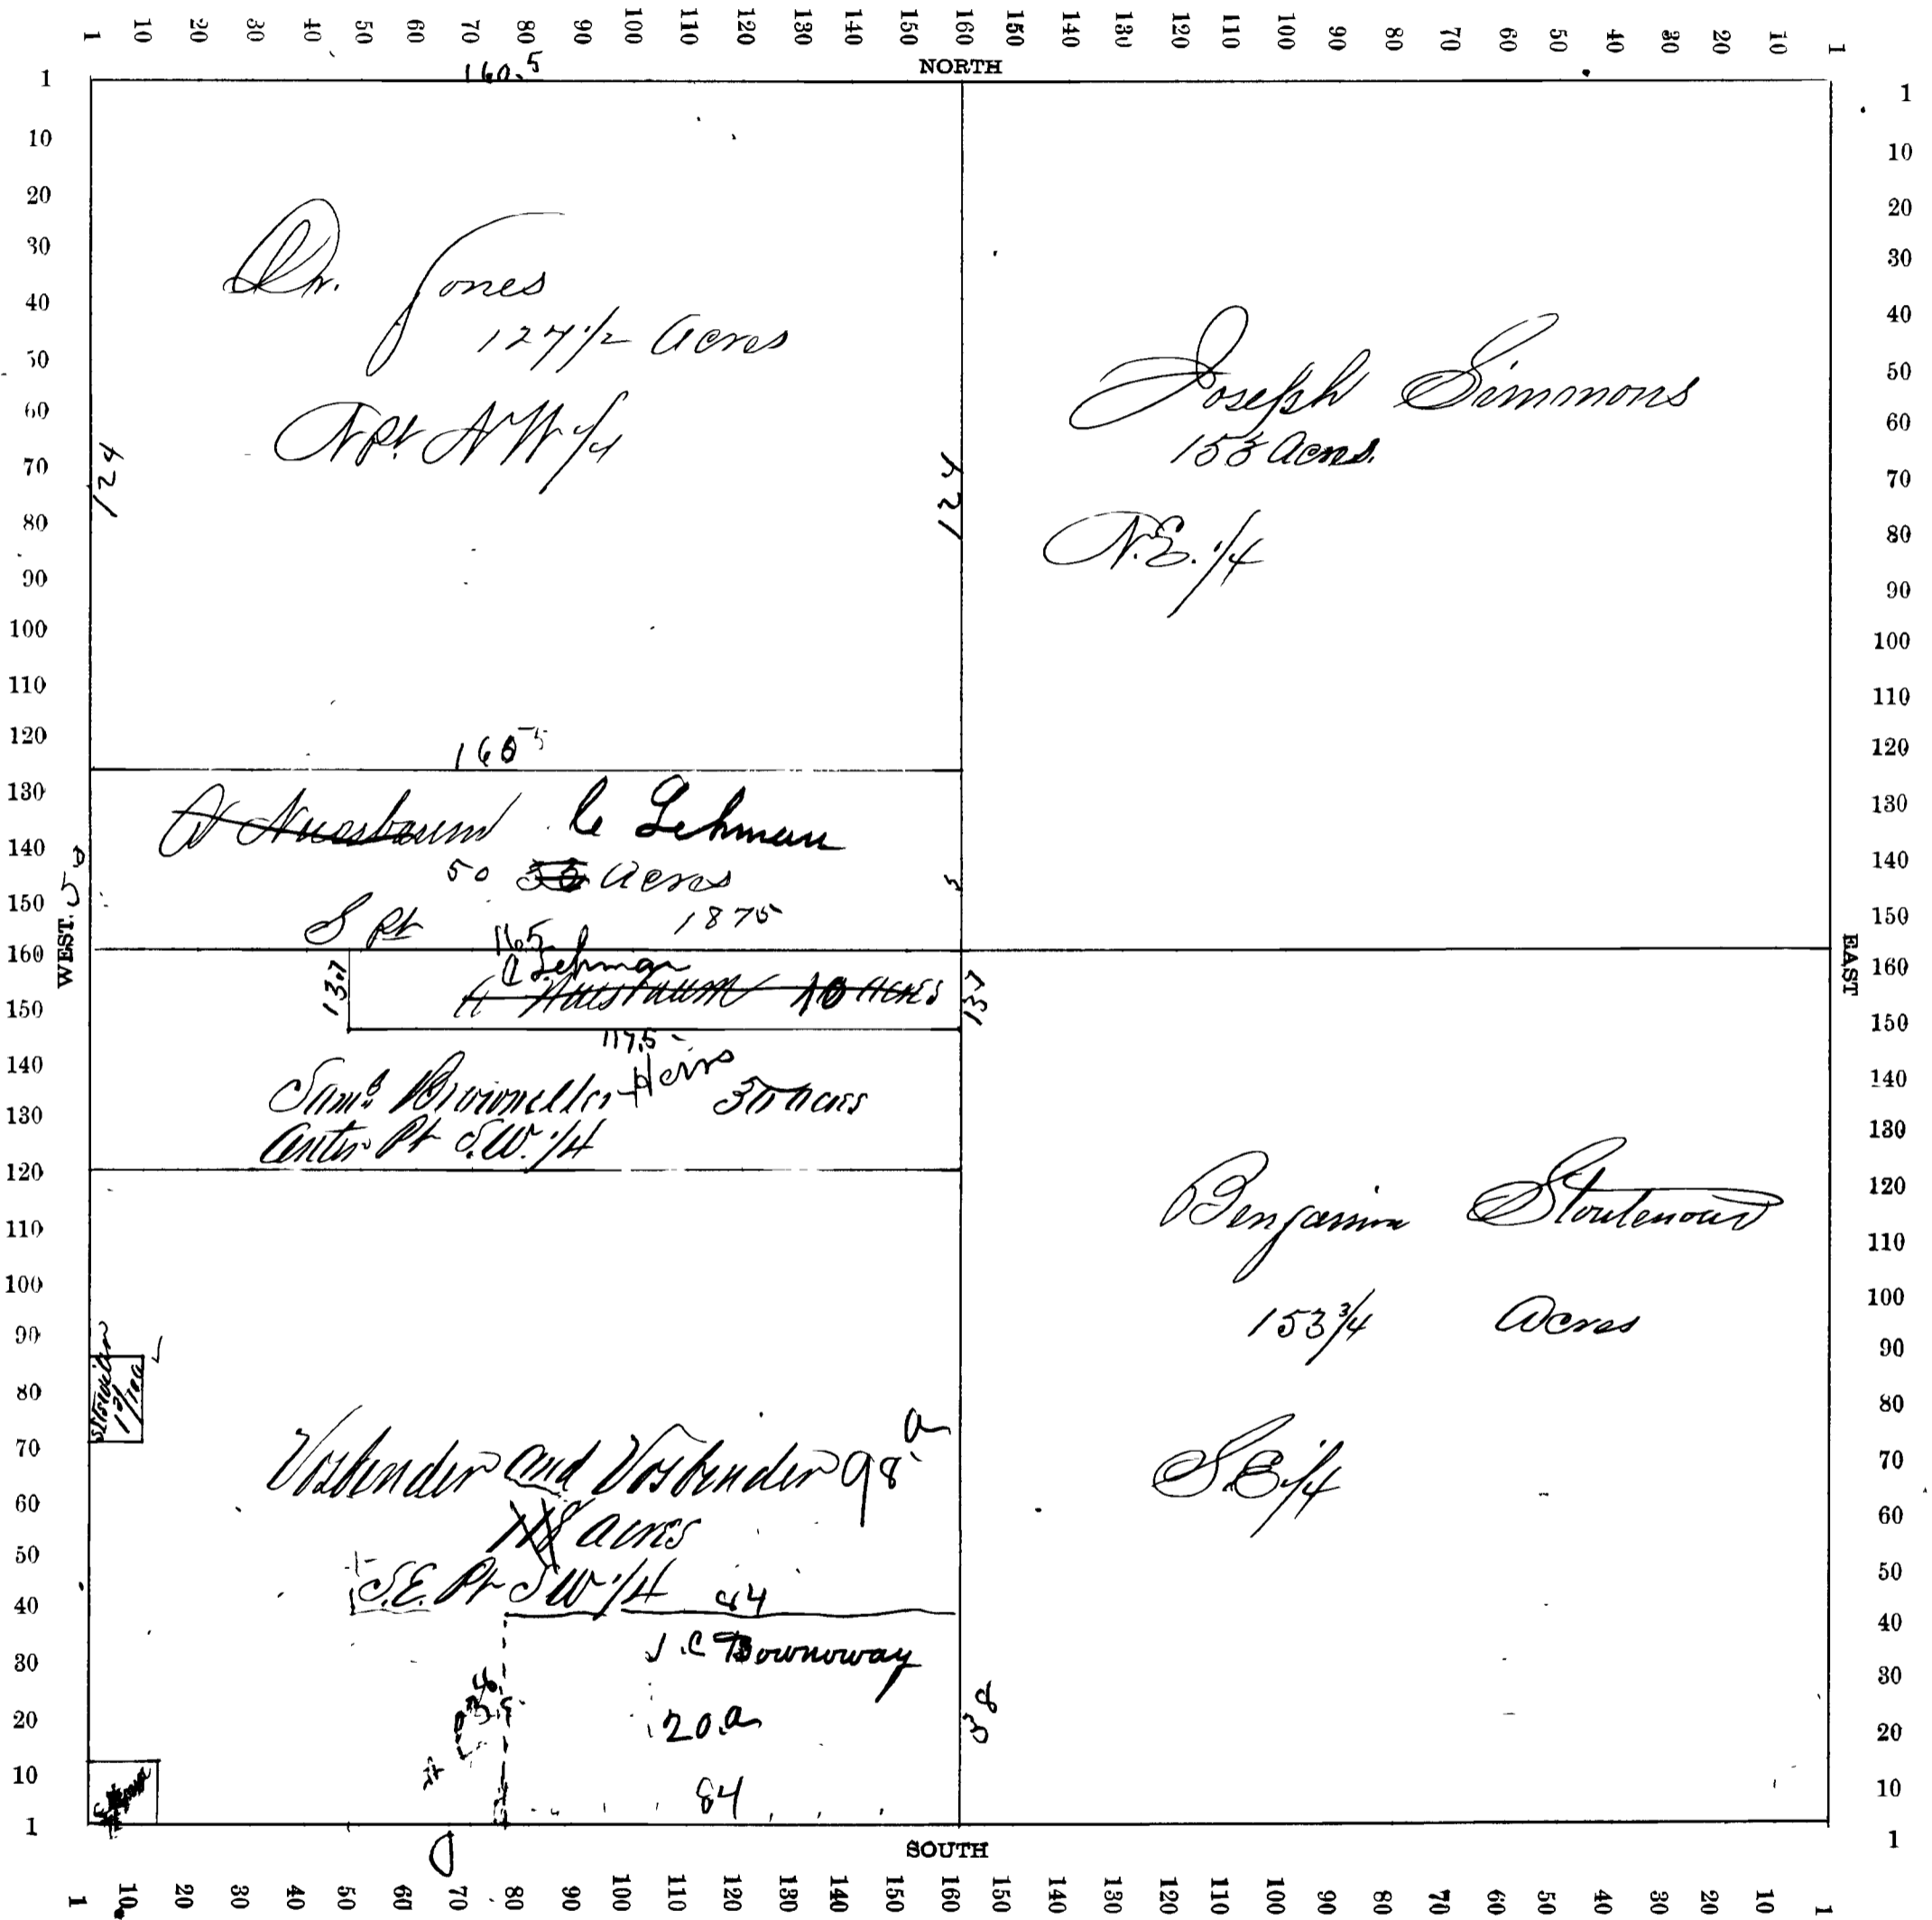 1 10 20 30 40 50 60 70 80 90 100 110 120 130 140 150 160 150 140 130 120 110 100 90 80 70 60 50 40 30 20 10 1
160.5
NORTH
1 10 20 30 40 50 60 70 80 90 100 110 120 130 140 150 160 150 140 130 120 110 100 90 80 70 60 50 40 30 20 10 1
WEST.
Dr. Jones
127 1/2 Acres
N pt. N W 1/4
124
124
Joseph Simmons
153 Acres.
N.E. 1/4
160 5
Nusbaum Lehman
50 Acres
S pt 1875
Lehman
13.7
Nusbaum 10 acres
13.7
117.5
Heirs
Center Pt S.W. 1/4
Benjamin
153 3/4 Acres
S.E 1/4
and 98 a
acres
S.E. Pt S W 1/4 84
20.a
38
84
1 10 20 30 40 50 60 70 80 90 100 110 120 130 140 150 160 150 140 130 120 110 100 90 80 70 60 50 40 30 20 10 1
EAST
SOUTH
1 10 20 30 40 50 60 70 80 90 100 110 120 130 140 150 160 150 140 130 120 110 100 90 80 70 60 50 40 30 20 10 1